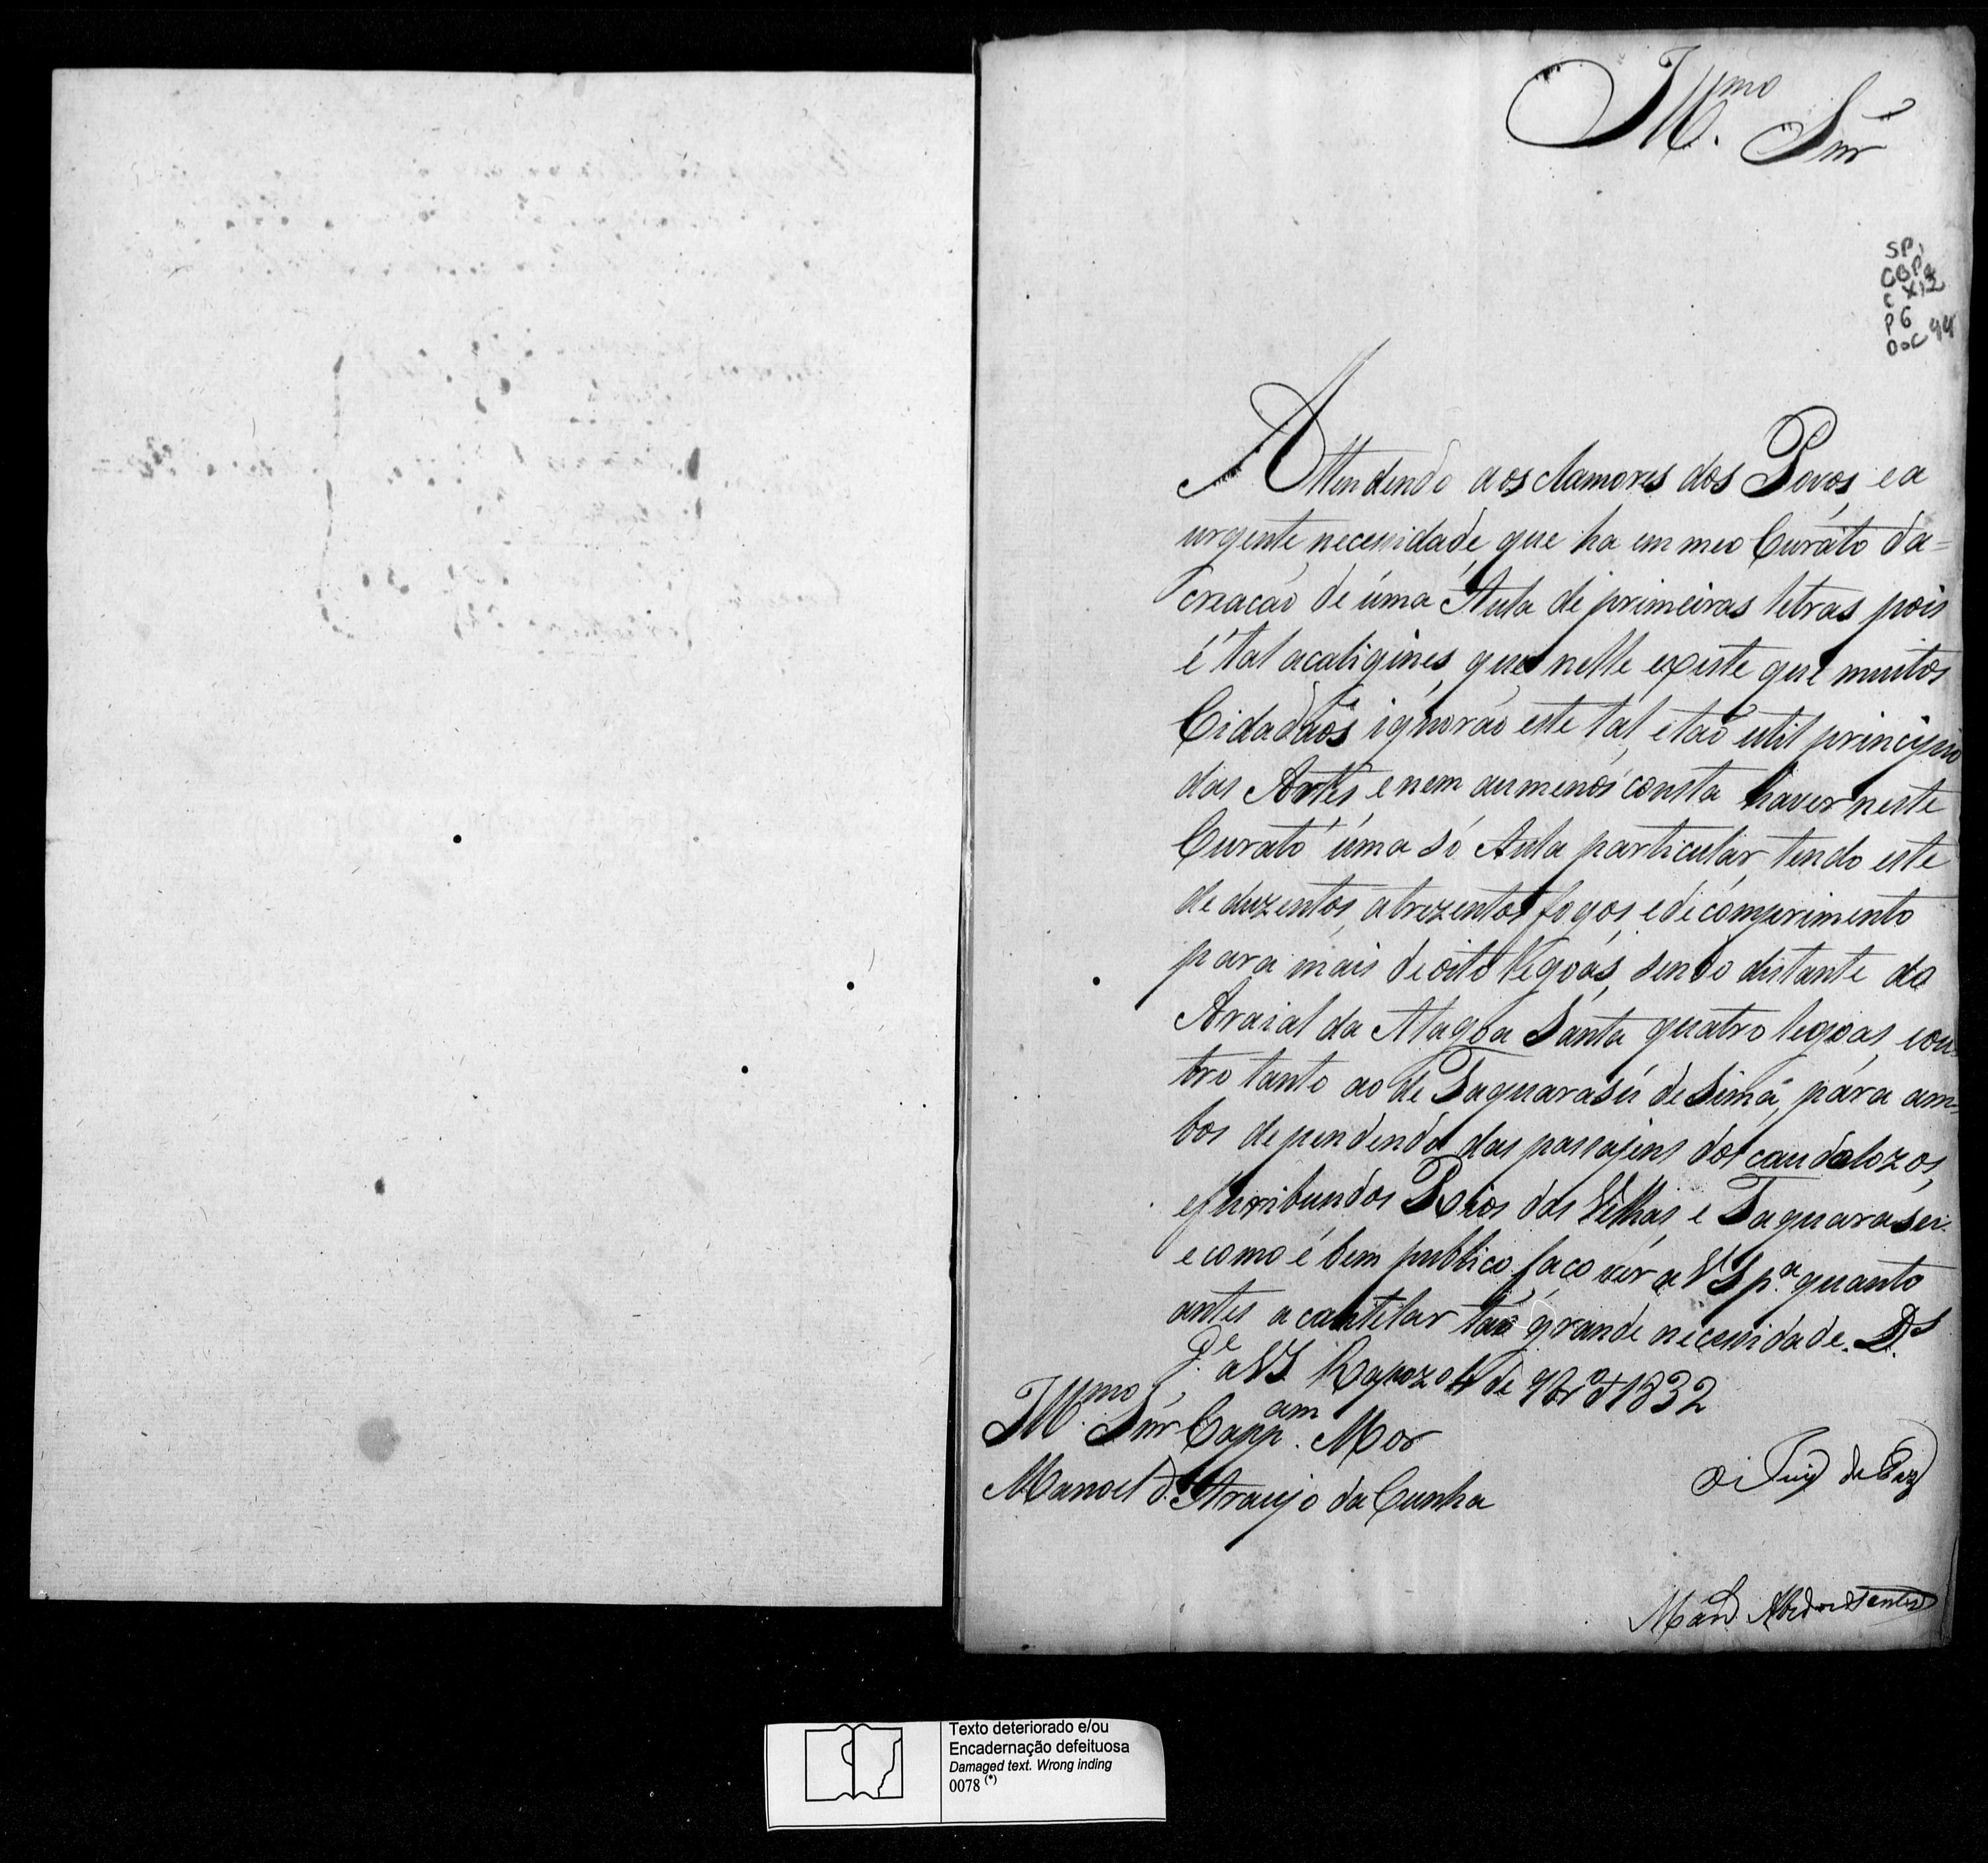 Ill.mo Snr
SP
CBP
C X12
P6
Doc 44
Attendendo aos clamores dos Povos, e a
urgente necessidade, que ha em meo Curato da=
creacaõ de úma Aula de primeiras letras pois
é tal acaligines, que nelle existe que muitos
Cidadaõs ignoraõ este tal, e taõ util principio
das Artes, e nem aumenos consta haver neste
Curato úma só Aula particular, tendo este
de duzentos, a trezentos fogos, e de comprimento
para mais de oito legoas, sendo distante do
Araial da Alagoa Santa quatro legoas, e ou=
tro tanto ao de Taquarasú de sima, para am=
bos dependendo das passajens dos caudalozos,
e furibundos Rios das Velhas, e Taquarasú.
e como é bem publico faço ver a VS p.a quanto
antes acautelar taõ grande necessidade. D.s
G.e a VS. Rapozo 4 de 9br.o d 1832
Ill.mo Snr Capp.am Mor
Manoel d. Araujo da Cunha
O Juiz de Paz
Texto deteriorado e/ou
Encadernação defeituosa
Damaged text. Wrong inding
0078 (*)